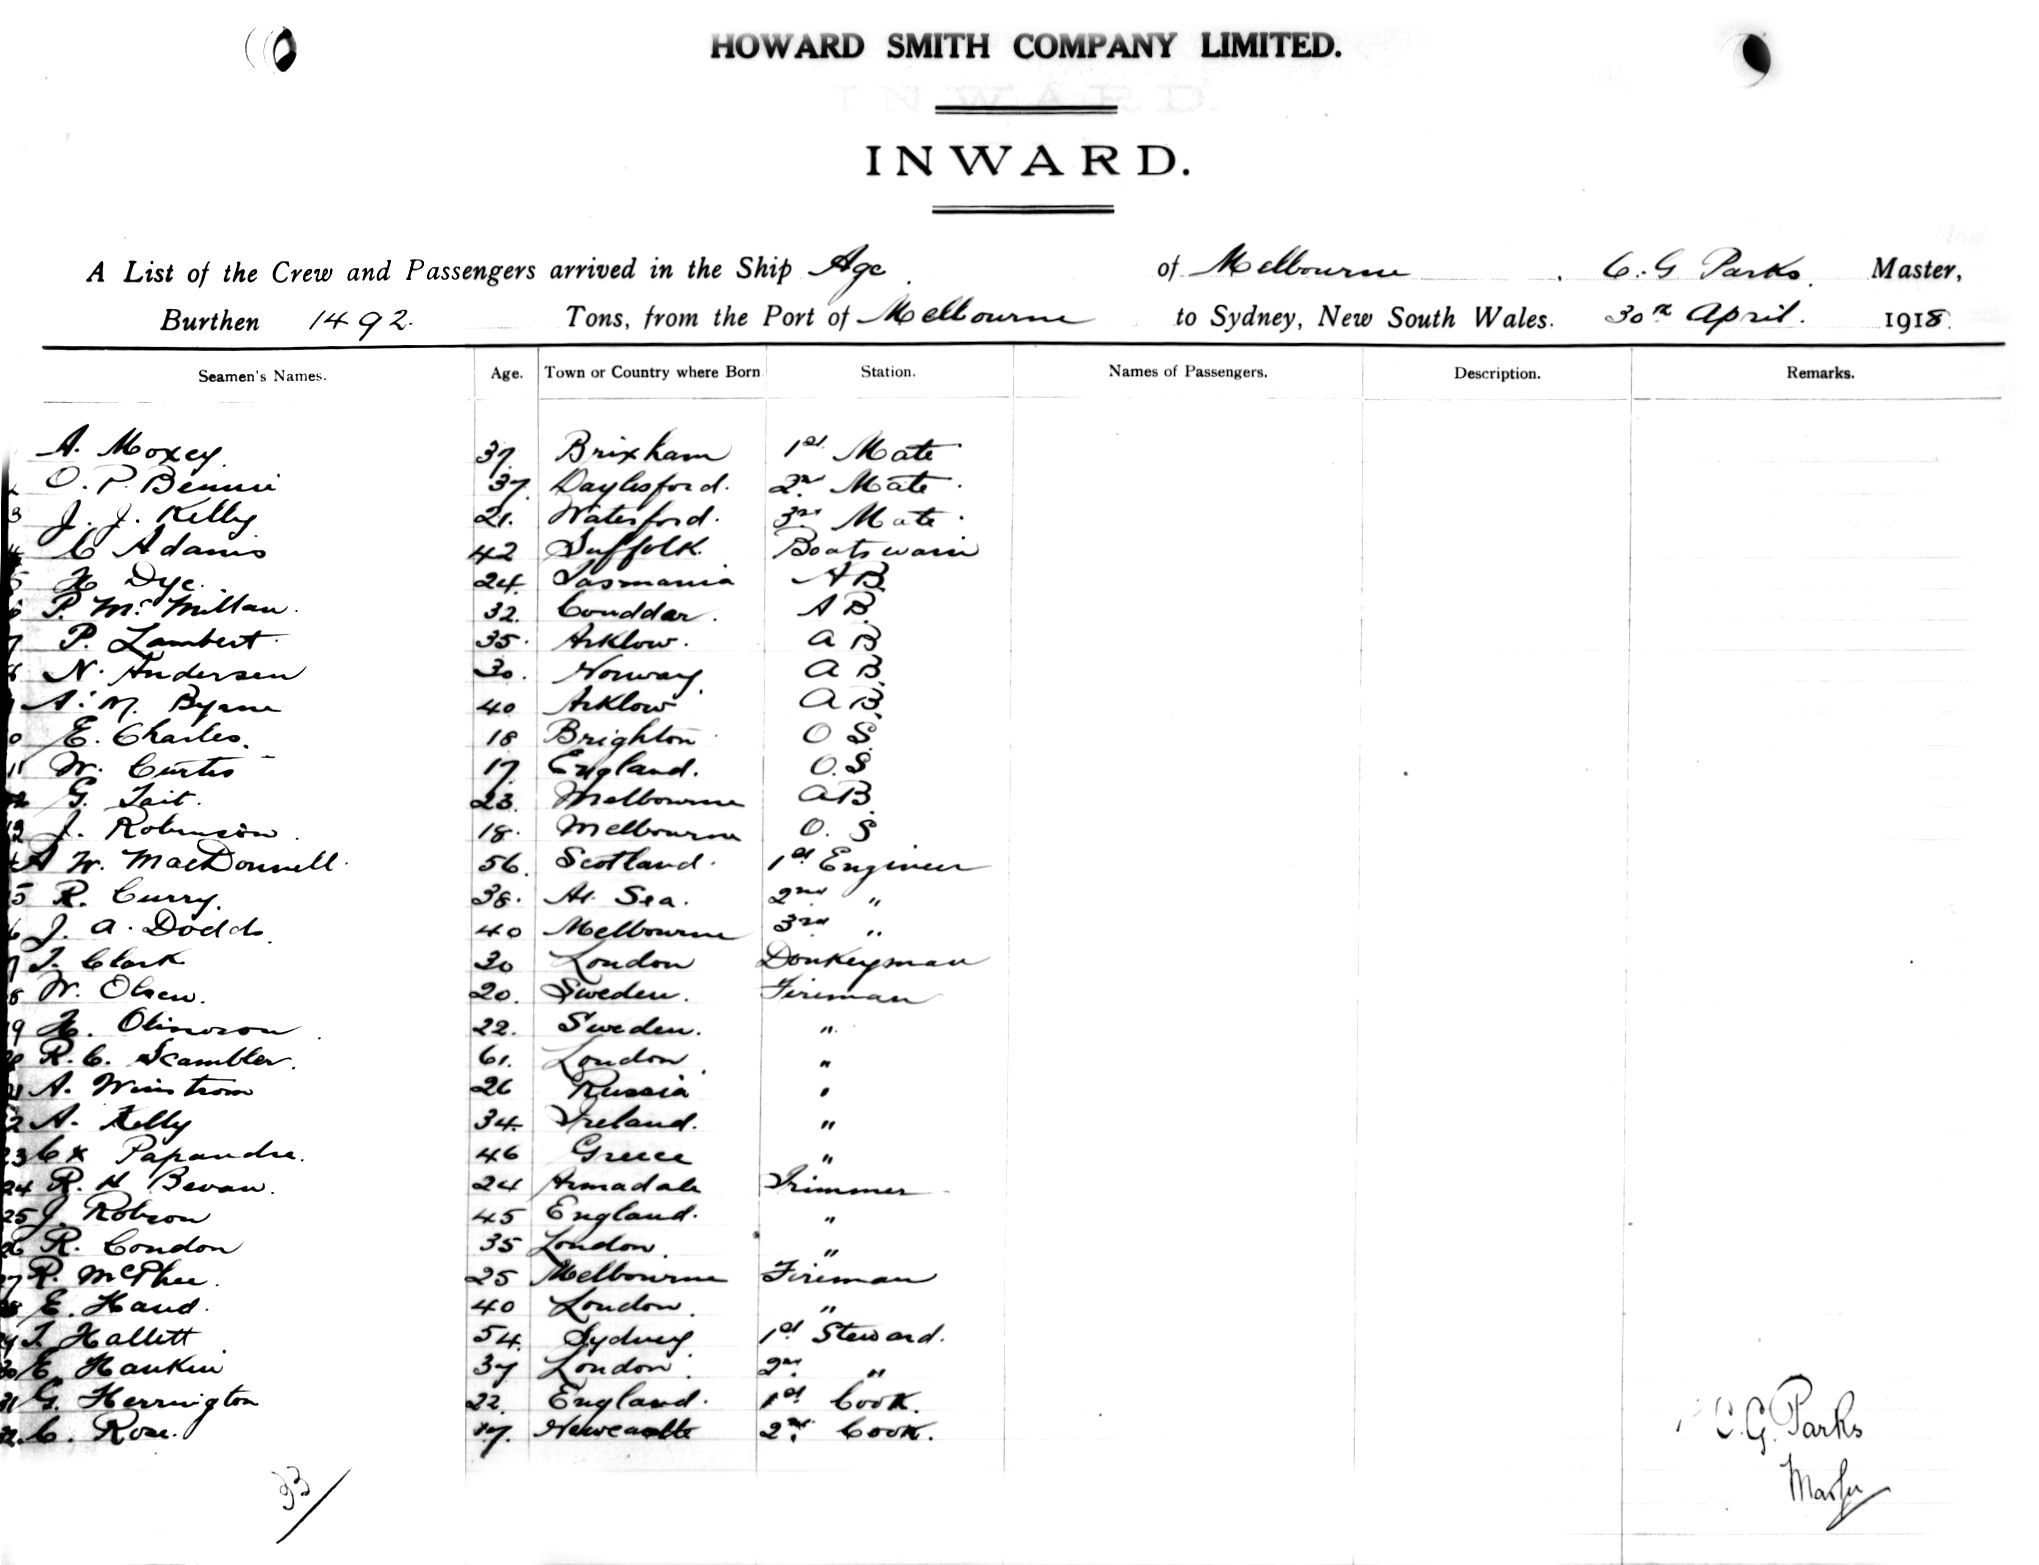 HOWARD SMITH COMPANY LIMITED.
INWARD.
A List of the Crew and Passengers arrived in the Ship Age of Melbourne, C. G Parks. Master,
Burthen 1492. Tons, from the Port of Melbourne to Sydney, New South Wales. 30th April. 1918.
Seamen's Names. Age. Town or Country where Born Station. Names of Passengers. Description. Remarks.
A. Moxey 37. Brixham 1st Mate
2 O. P. Bennie 37. Daylesford. 2nd Mate.
3 J. J. Kelly 21. Waterford. 3rd Mate.
4 C Adams 42 Suffolk. Boatswain
5 H Dye. 24. Tasmania A B.
6 P. McMillan. 32. A B.
7 P. Lambert. 35. Arklow. A B
8 N. Andersen 30. Norway A B
A. M. Byrne 40 Arklow A B.
E. Charles. 18 Brighton O S.
11 W. Curtis 17. England. O. S
12 G. Tait. 23. Melbourne A B.
13 J. Robinson. 18. Melbourne O. S
A W. MacDonnell. 56. Scotland. 1st Engineer
15 R. Curry. 38. At Sea. 2nd "
16 J. A. Dodds. 40 Melbourne 3rd "
17 T. Clark 30 London Donkeyman
18 W. Olsen. 20. Sweden. Fireman
19 H. 22. Sweden. "
20 R. C. Scambler. 61. London. "
21 A. Winstrom 26 Russia "
22 A. Kelly 34. Ireland. "
23 C x Papandre. 46 Greece "
24 R. H Bevan. 24 Armadale Trimmer
25 J. Robson 45 England. "
26 R. Condon 35 London. "
27 R. McPhee. 25 Melbourne Fireman
28 E. Hand. 40 London. "
29 T. Hallett 54. Sydney 1st Steward.
30 E Hankin 37 London. 2nd "
31 G. Herrington 22. England. 1st Cook.
32. C. Rose. 17. Newcastle 2nd Cook.
33/
C. G. Parks
Master